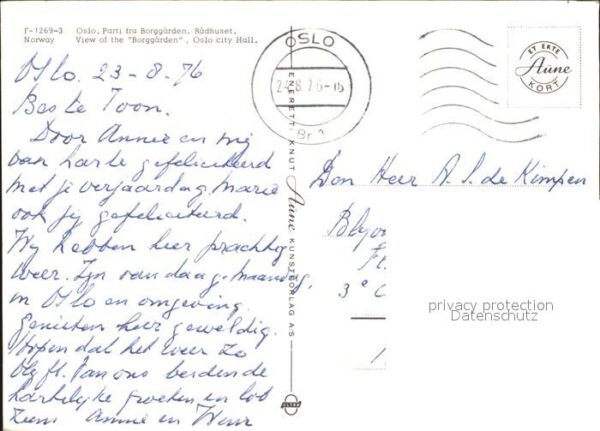 F-1269-3 Oslo, Parti fra Borggården, Rådhuset.
Norway View of the "Borggården", Oslo city Hall.
Oslo. 23-8-76
Beste Toon.
Door Annie en mij
van harte gefeliciteerd
met je verjaardag, Marie
ook jij gefeliciteerd.
Wij hebben hier prachtig
weer. Zijn vandaag, maandag,
in Oslo en omgeving.
Genieten hier geweldig.
Hopen dat het weer zo
blijft. Van ons beiden de
hartelijke groeten en tot
ziens Annie en Wim
ENERETT: KNUT Aune KUNSTFORLAG A/S
ULTRA
OSLO
24.8.76-15
Br 1
ET EKTE
Aune
KORT
Den Heer A. S. de Kimpen
3e C
privacy protection
Datenschutz